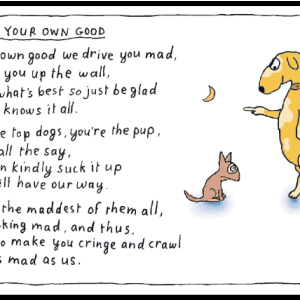 YOUR OWN GOOD
own good we drive you mad,
you up the wall,
what's best so just be glad
knows it all.
top dogs, you're the pup,
all the say,
kindly suck it up
have our way.
the maddest of them all,
king mad, and thus,
make you cringe and crawl
mad as us.